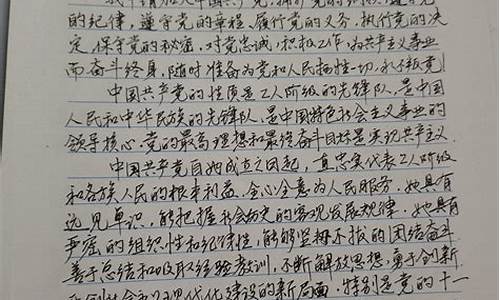 的纪律，遵守党的章程，履行党的义务，执行党的决
定，保守党的秘密，对党忠诚，积极工作，为共产主义事业
而奋斗终身，随时准备为党和人民牺牲一切，永不叛党
中国共产党的性质是工人阶级的先锋队，是中国
人民和中华民族的先锋队，是中国特色社会主义事业的
领导核心，党的最高理想和最终奋斗目标是实现共产主义.
中国共产党自她成立之日起，直忠实代表工人阶级
和各族人民的根本利益，全心全意为人民服务，她具有
远见卓识，能把握社会历史的客观发展规律，她具有
严密的组织性和纪律性，能够坚持不拔的团结奋斗
善于总结和吸取经验教训，不断解放思想，勇于创新
现代化建设的新局面，特别是党的十一